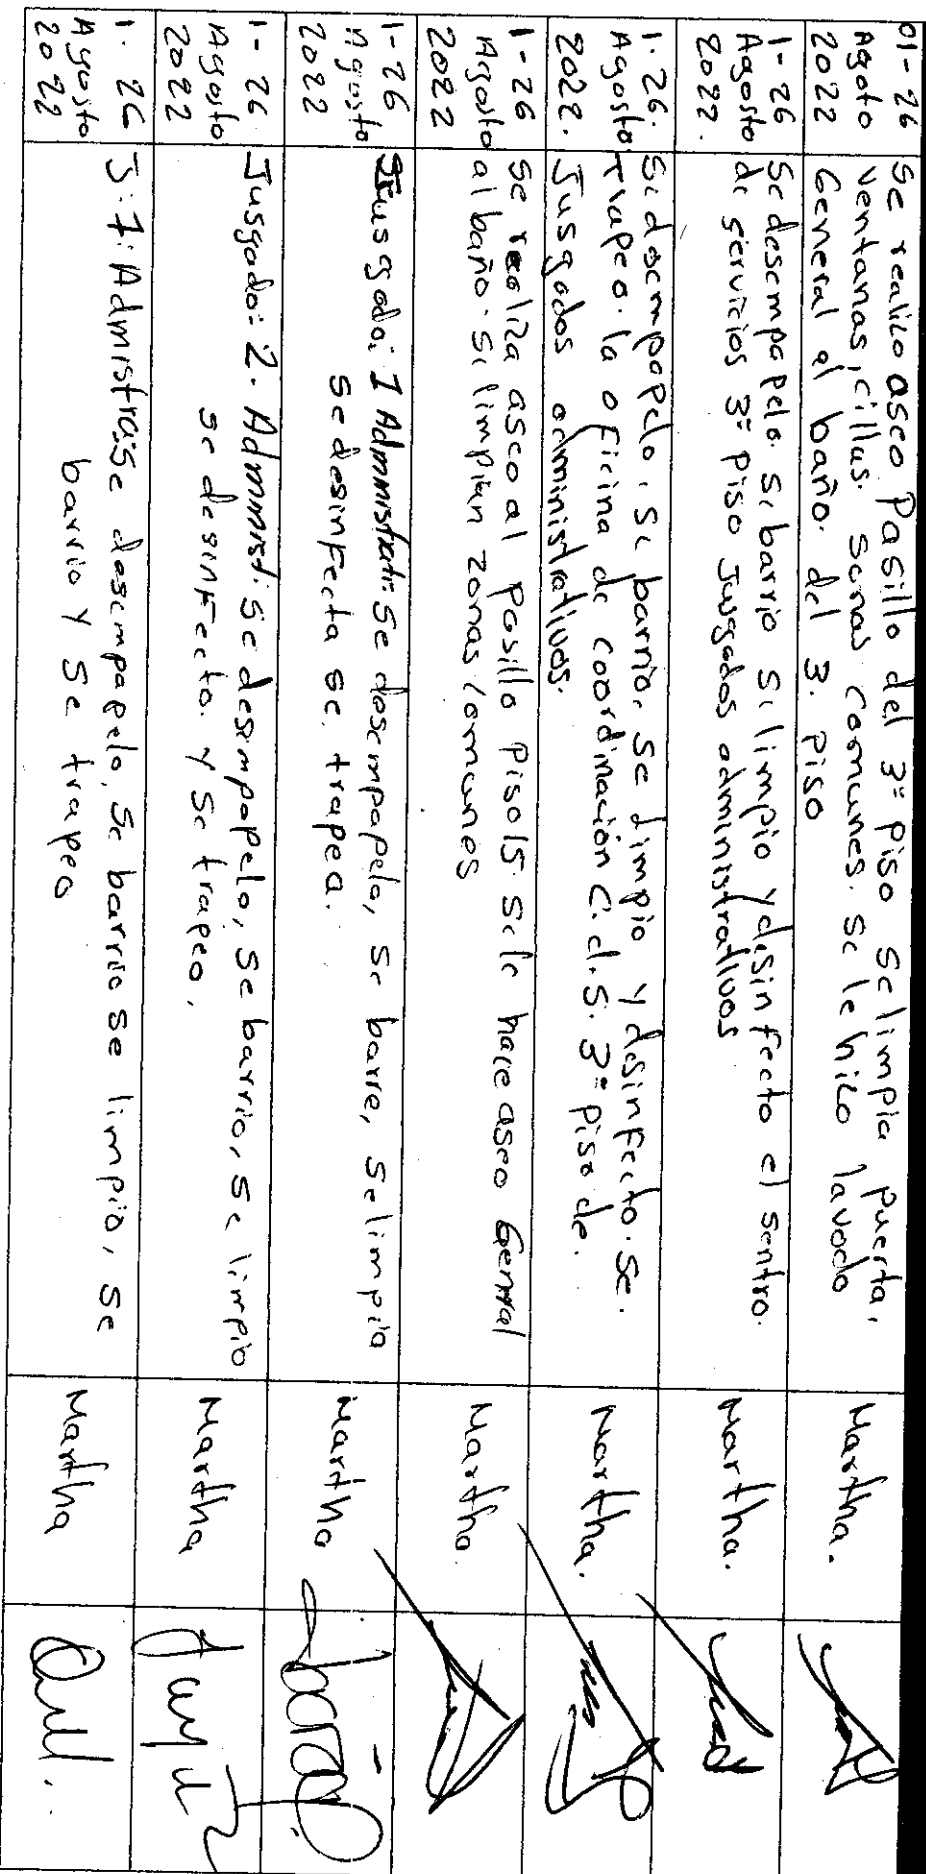 01-26
Agosto
2022
Se realizo aseo Pasillo del 3º piso se limpia puerta,
ventanas, cillas. Sonas comunes. se le hizo lavado
General al baño. del 3. Piso
Martha.
1-26
Agosto
2022.
Se desempapelo. se barrio se limpio y desinfecto el sentro.
de servicios 3º Piso Jusgados administrativos
Martha.
1.26.
Agosto
2022.
Se desempapelo, se barrio, se limpio y desinfecto. se.
trapeo. la oficina de coordinación C.d.S. 3º piso de.
Jusgados administrativos.
Martha.
1-26
Agosto
2022
Se realiza aseo al pasillo piso 15 se le hace aseo General
al baño. se limpian zonas comunes
Martha.
1-26
Agosto
2022
Jusgado: 1 Administrati: se desempapelo, se barre, se limpia
se desinfecta se. trapea.
Martha
1-26
Agosto
2022
Jusgado: 2. Administ: se desempapelo, se barrio, se limpio
se desinfecto. y se trapeo.
Martha
1.26
Agosto
2022
J:7: Admistra: se desempapelo, se barrio se limpio, se
barrio y se trapeo
Martha